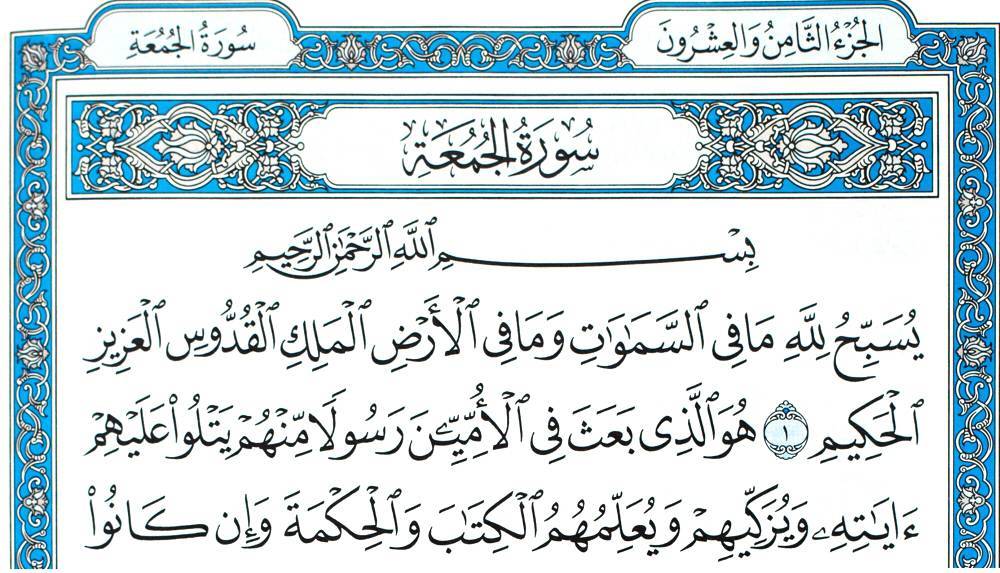 الجُزْءُ الثَّامِنُ وَالعِشْرُونَ
سُورَةُ الجُمُعَةِ
سُورَةُ الجُمُعَةِ
بِسْمِ ٱللَّهِ ٱلرَّحْمَٰنِ ٱلرَّحِيمِ
يُسَبِّحُ لِلَّهِ مَا فِى ٱلسَّمَٰوَٰتِ وَمَا فِى ٱلْأَرْضِ ٱلْمَلِكِ ٱلْقُدُّوسِ ٱلْعَزِيزِ
ٱلْحَكِيمِ ١ هُوَ ٱلَّذِى بَعَثَ فِى ٱلْأُمِّيِّـۧنَ رَسُولًا مِّنْهُمْ يَتْلُوا۟ عَلَيْهِمْ
ءَايَٰتِهِۦ وَيُزَكِّيهِمْ وَيُعَلِّمُهُمُ ٱلْكِتَٰبَ وَٱلْحِكْمَةَ وَإِن كَانُوا۟